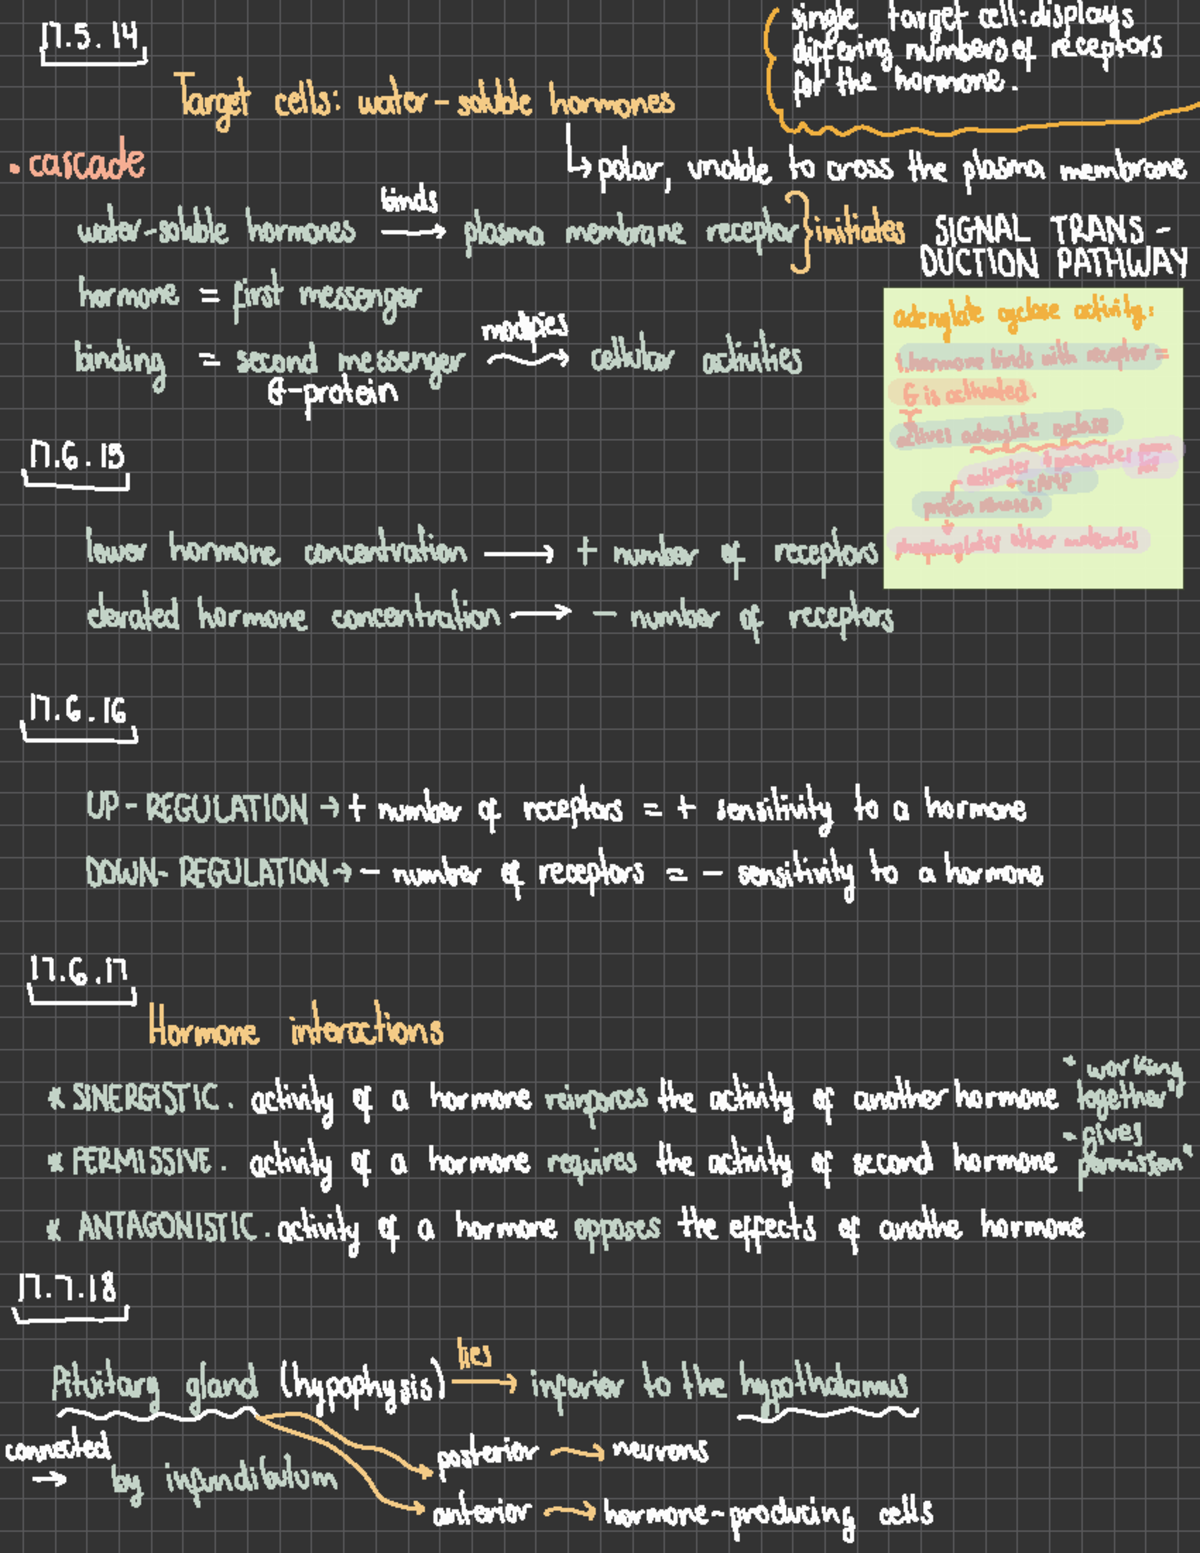 single target cell: displays
differing numbers of receptors
for the hormone.
17.5.14
Target cells: water-soluble hormones
↳ polar, unable to cross the plasma membrane
• cascade
binds
water-soluble hormones → plasma membrane receptor } initiates SIGNAL TRANS-
DUCTION PATHWAY
hormone = first messenger
modifies
binding = second messenger → cellular activities
G-protein
adenylate cyclase activity:
1. hormone binds with receptor =
G is activated.
actives adenylate cyclase
activates + generates from
cAMP
protein kinase A
phosphorylates other molecules
17.6.15
lower hormone concentration → + number of receptors
elevated hormone concentration → - number of receptors
17.6.16
UP-REGULATION → + number of receptors = + sensitivity to a hormone
DOWN-REGULATION → - number of receptors = - sensitivity to a hormone
17.6.17
Hormone interactions
* SINERGISTIC. activity of a hormone reinforces the activity of another hormone "working
together"
* PERMISSIVE. activity of a hormone requires the activity of second hormone "gives
permission"
* ANTAGONISTIC. activity of a hormone opposes the effects of anothe hormone
17.7.18
lies
Pituitary gland (hypophysis) → inferior to the hypothalamus
connected
→ by infundibulum
posterior → neurons
anterior → hormone-producing cells